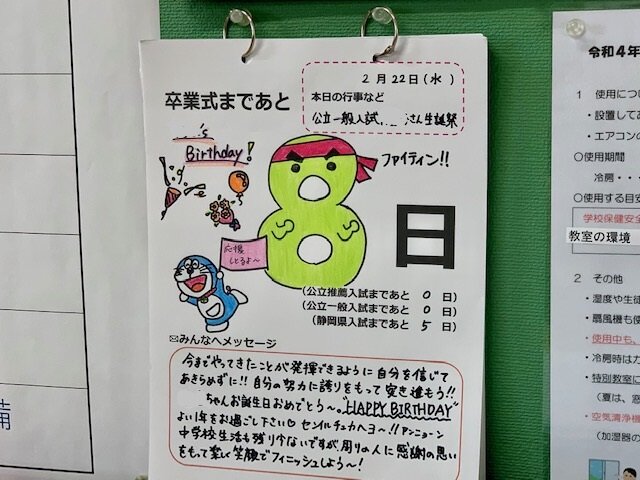 2月22日(水)
本日の行事など
公立一般入試
さん生誕祭
卒業式まであと
's
Birthday!
ファイティン!!
8日
応援
しとるよ〜
(公立推薦入試まであと 0 日)
(公立一般入試まであと 0 日)
(静岡県入試まであと 5 日)
みんなへメッセージ
今までやってきたことが発揮できるように自分を信じて
あきらめずに!!自分の努力に誇りをもって突き進もう!!
ちゃんお誕生日おめでとう〜。"HAPPY BIRTHDAY"
よい1年をお過ごし下さい♡センイルチュカヘヨ〜!!アンニョーン
中学校生活も残り少ないですが周りの人に感謝の思い
をもって楽しく笑顔でフィニッシュしよう〜!
備
令和4年
1 使用につい
・設置してあ
・エアコンの
〇使用期間
冷房・・・
〇使用する目安
学校保健安全
教室の環境
2 その他
・湿度や生徒
・扇風機も使
・使用中も、
・冷房時は力
・特別教室に
(夏は、窓
・空気清浄機
(加湿器の